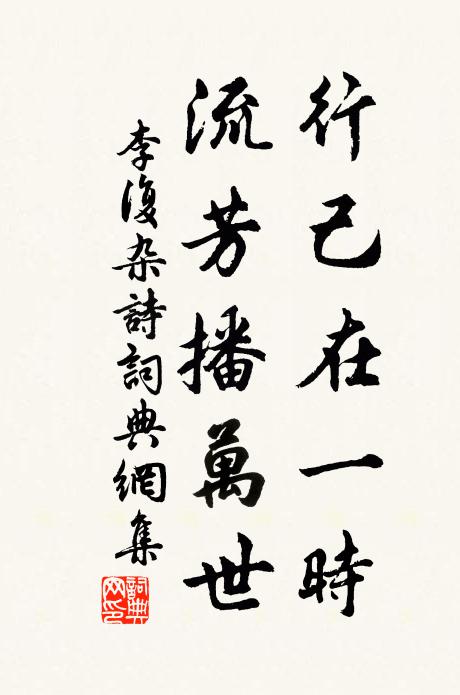 行己在一時
流芳播萬世
李復杂詩詞典網集
詞典
网印